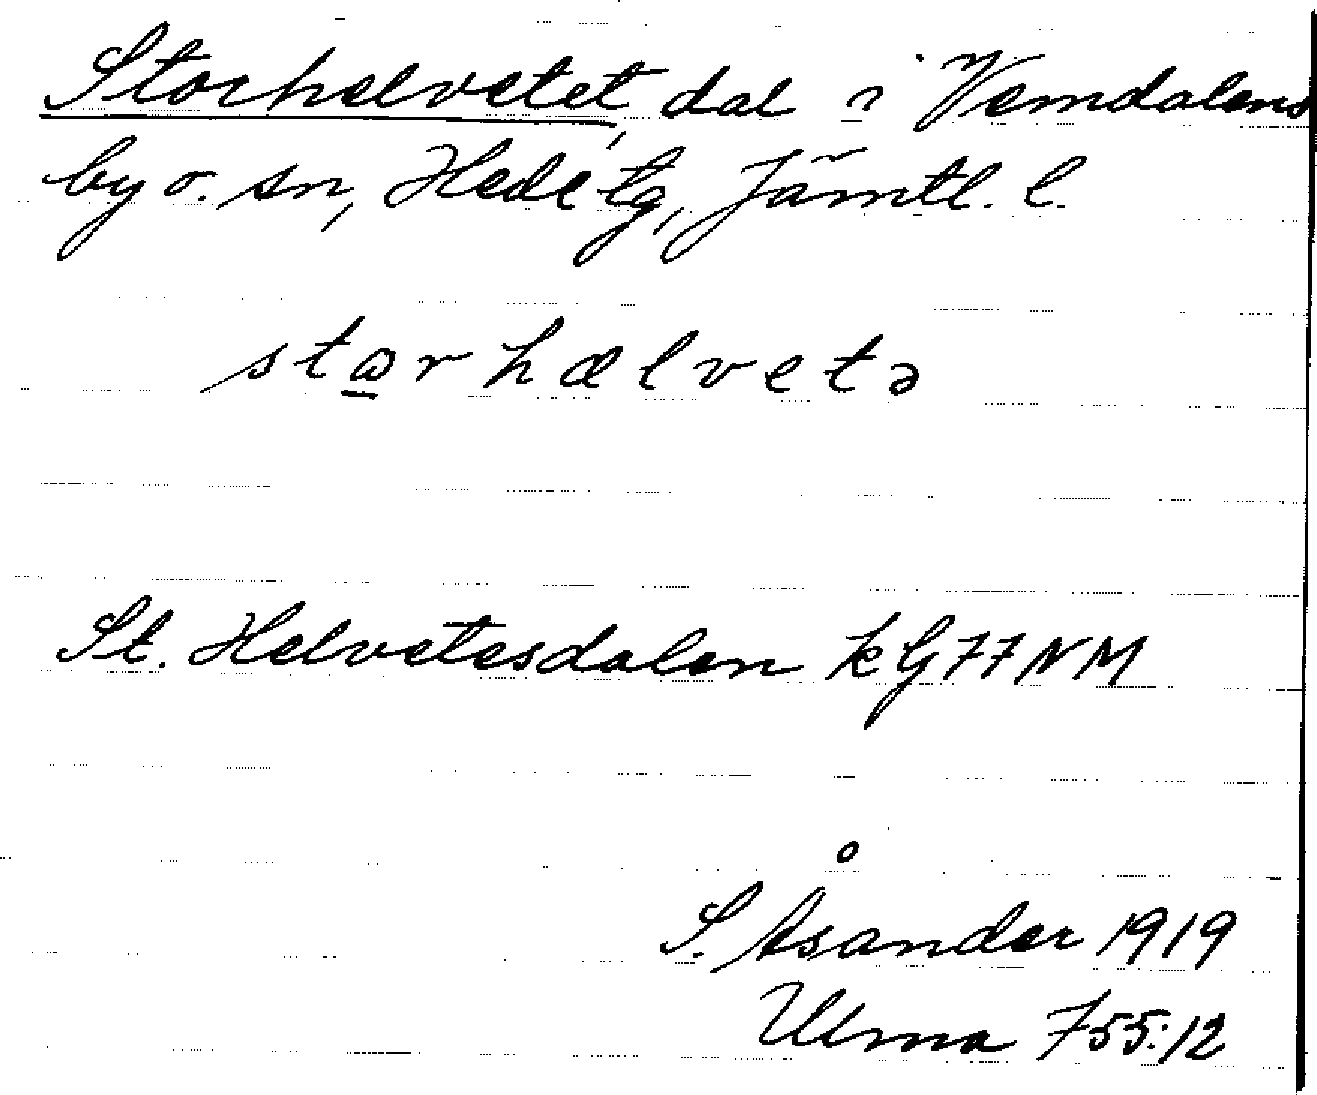 Storhelvetet, dal i Vemdalens
by o. sn, Hede tg, Jämtl. l.
stɷrhælvetə
St. Helvetesdalen kG77NM
S. Åsander 1919
Ulma 755:12